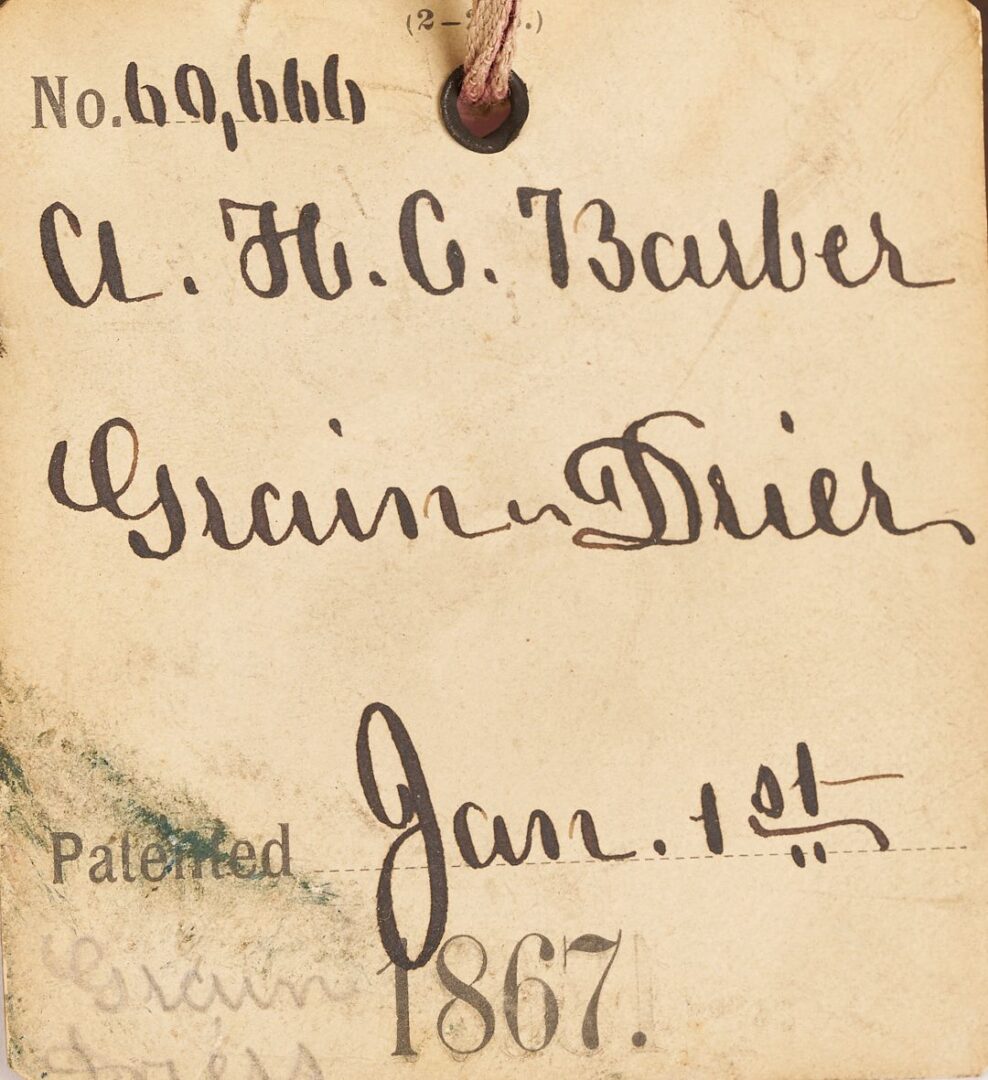 No. 60,666
A. H. C. Barber
Grain Drier
Patented Jan. 1st
1867.
Grain
Driers